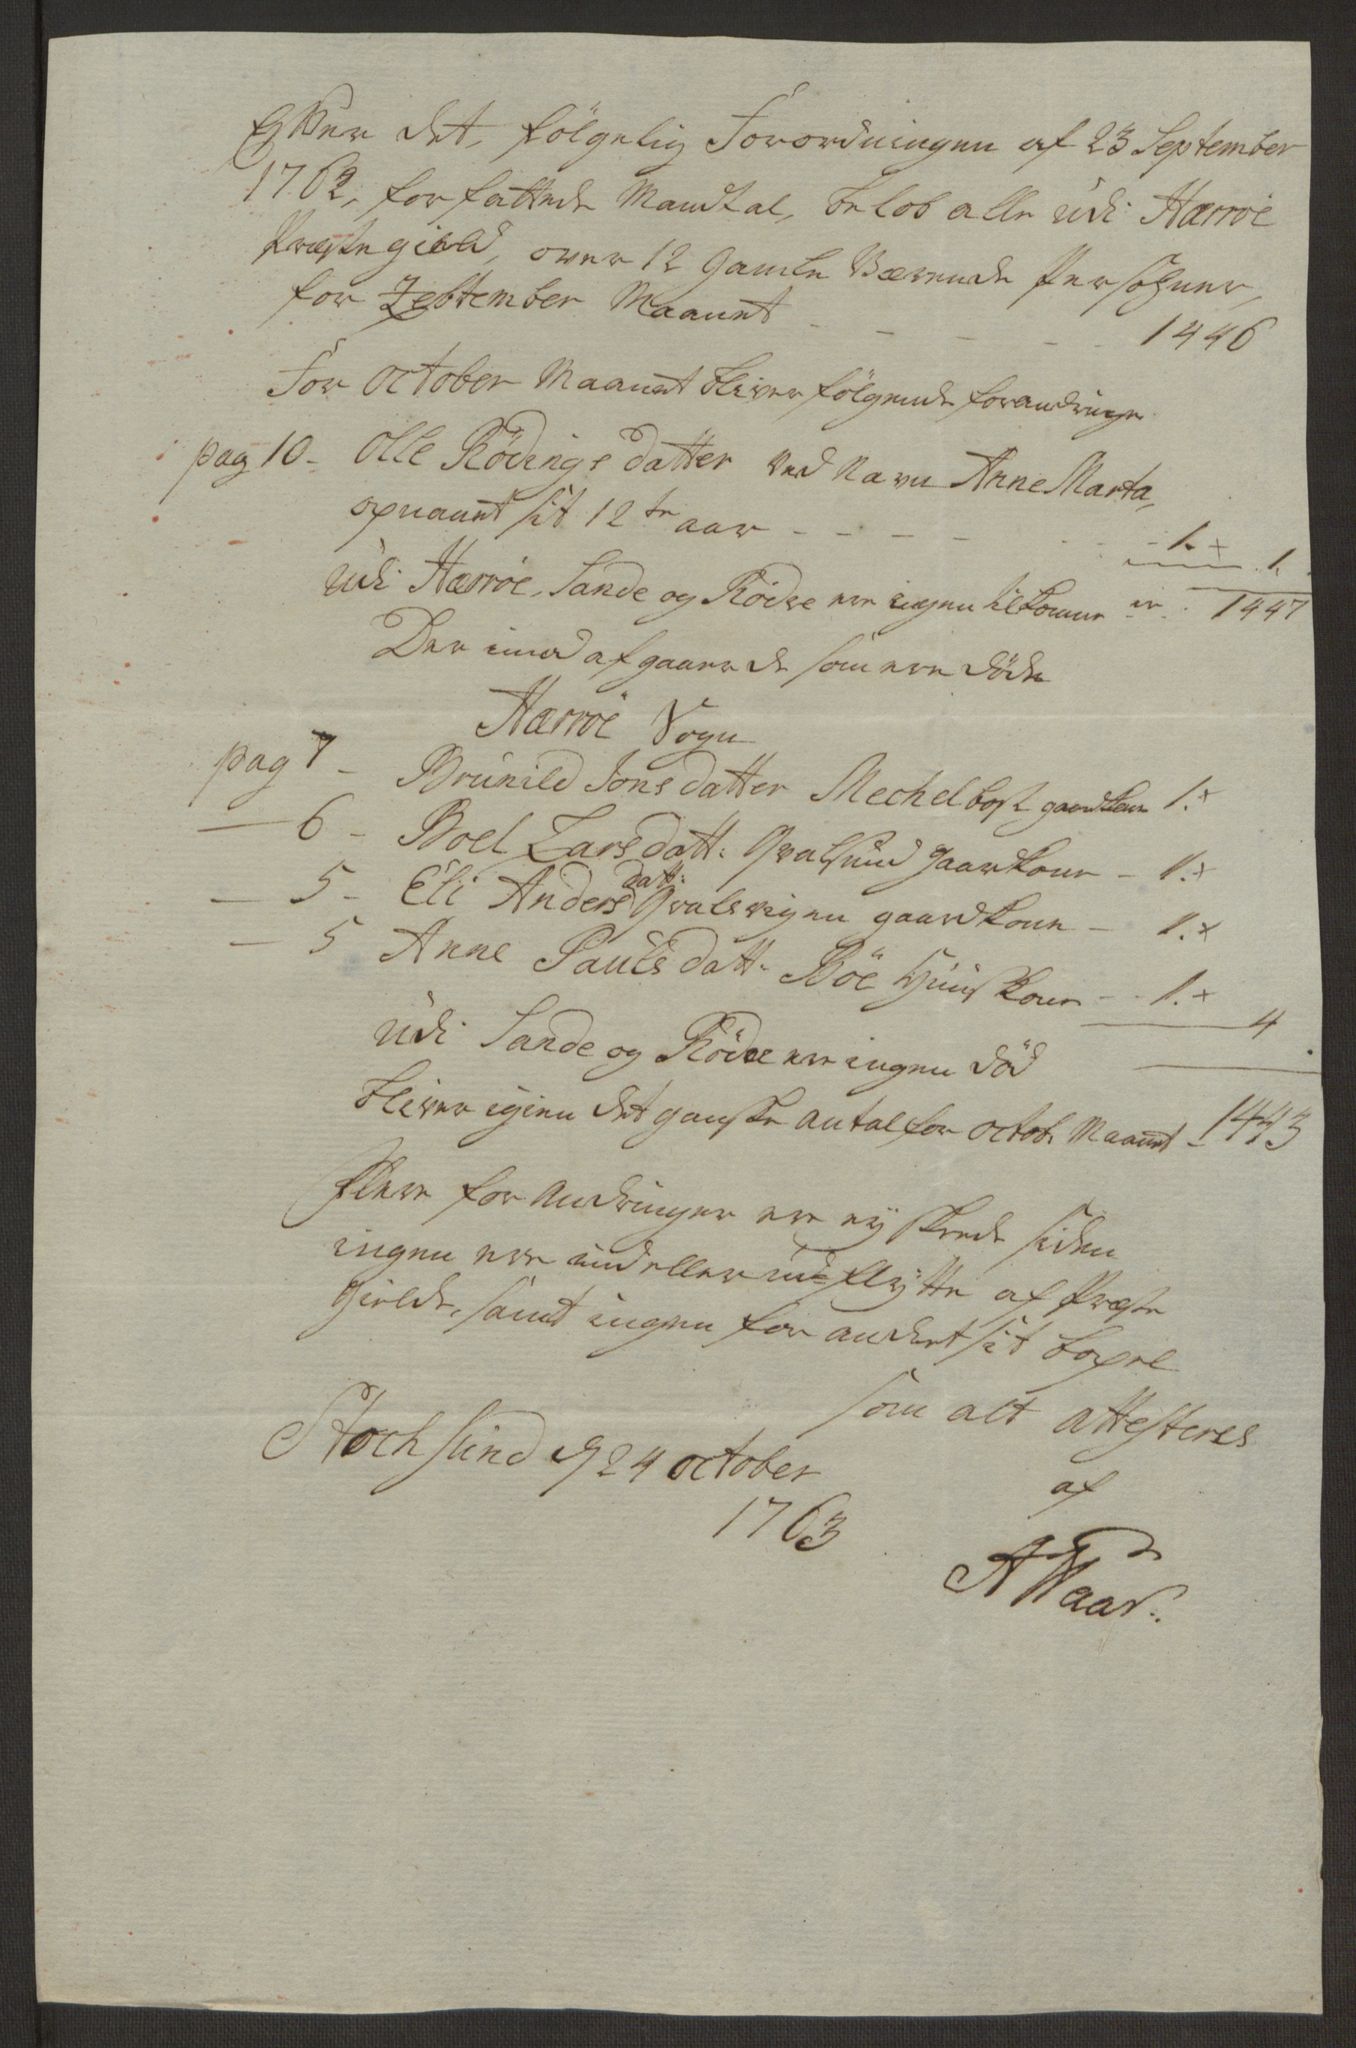 Efter det, fölgelig Forordningen af 23 September
1762, forfattede Mandtal, beløb alle udi Hærröe
Præstegield, over 12 Gamle Værende Persohner,
for Zebtember Maanet - - - - - 1446
For October Maanet bliver fölgende forandringe
pag 10 - Olle Rödings datter ved Navn Anne Marta,
opnaaet sit 12te aar - - - - - 1.+ 1.
udi Hærröe, Sande og Rödue ere ingen tilkomne er 1447
Der imod afgaar de som ere döde
Hærröe Sogn
pag 7 - Brunild Jonsdatter Mechelbost gaardkone 1.+
— 6 - Boel Larsdatt: Qvalsund gaardkone - 1.+
— 5 - Eli Andersdatt: Qvalsvigen gaardkone - 1.+
— 5 Anne Paulsdatt: Böe Huuskone - - 1.+
4
udi Sande og Rödue ere ingen död
bliver igien det ganske antal for octob: Maanet - 1443
Flere forandringer ere ey skeede siden
ingen ere ind eller udflÿtte af Præste
Gieldet, samt ingen forandret sit bopæl
som alt attesteres
Stochsund d 24 october
af
1763
A Kaas.